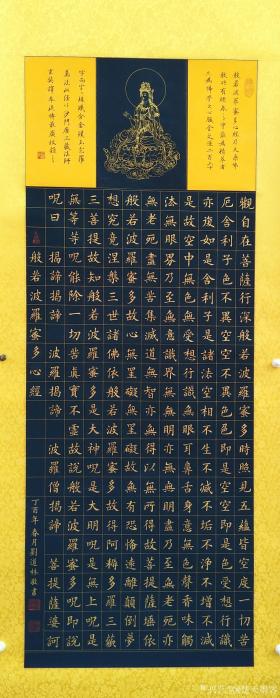 般若波羅蜜多心經乃大乘佛
沙門唐三藏法師
玄奘譯本流傳最廣
觀自在菩薩行深般若波羅蜜多時照見五蘊皆空度一切苦
厄舍利子色不異空空不異色色即是空空即是色受想行識
亦復如是舍利子是諸法空相不生不滅不垢不淨不增不減
是故空中無色無受想行識無眼耳鼻舌身意無色聲香味觸
法無眼界乃至無意識界無無明亦無無明盡乃至無老死亦
無老死盡無苦集滅道無智亦無得以無所得故菩提薩埵依
般若波羅蜜多故心無罣礙無罣礙故無有恐怖遠離顛倒夢
想究竟涅槃三世諸佛依般若波羅蜜多故得阿耨多羅三藐
三菩提故知般若波羅蜜多是大神呪是大明呪是無上呪是
無等等呪能除一切苦真實不虛故說般若波羅蜜多呪即說
呪曰 揭諦揭諦 波羅揭諦 波羅僧揭諦 菩提薩婆訶
般若波羅蜜多心經
丁酉年春月劉道林敬書